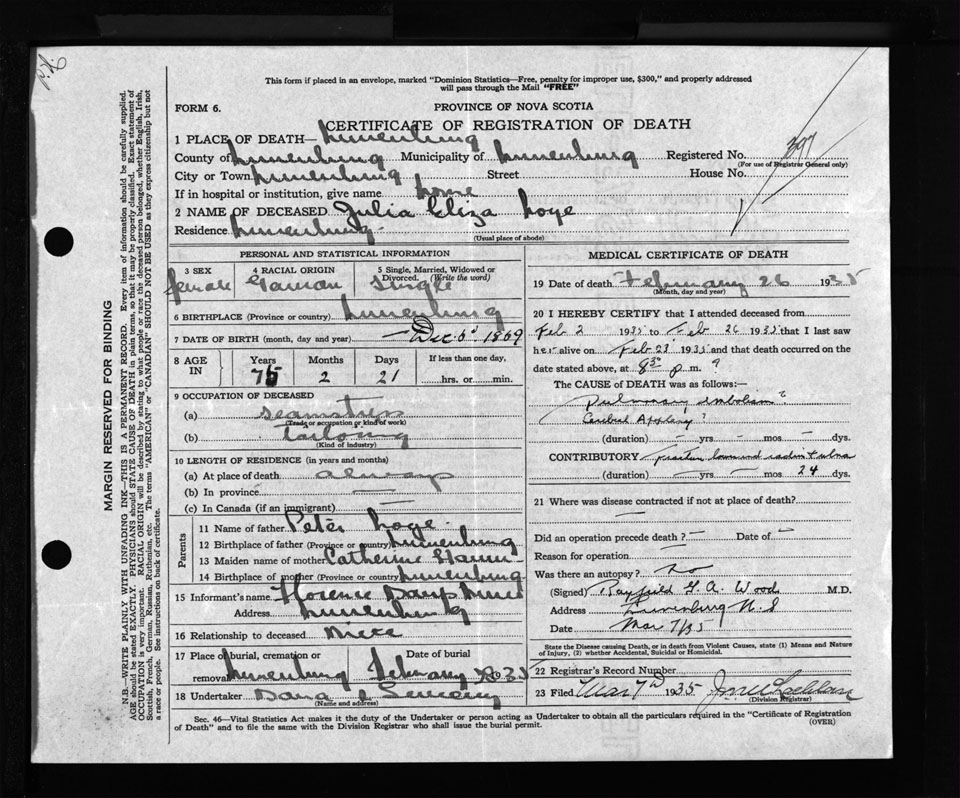 This form if placed in an envelope, marked "Dominion Statistics—Free, penalty for improper use, $300," and properly addressed
will pass through the Mail "FREE"
FORM 6.
PROVINCE OF NOVA SCOTIA
CERTIFICATE OF REGISTRATION OF DEATH
1 PLACE OF DEATH— Lunenburg
County of Lunenburg Municipality of Lunenburg Registered No. 397
(For use of Registrar General only)
City or Town Lunenburg Street House No.
If in hospital or institution, give name home
2 NAME OF DECEASED Julia Eliza Loye
Residence Lunenburg
(Usual place of abode)
PERSONAL AND STATISTICAL INFORMATION
3 SEX 4 RACIAL ORIGIN 5 Single, Married, Widowed or
Divorced. (Write the word)
female German Single
6 BIRTHPLACE (Province or country) Lunenburg
7 DATE OF BIRTH (month, day and year) Dec. 5 1869
8 AGE IN Years Months Days If less than one day,
75 2 21 hrs. or min.
9 OCCUPATION OF DECEASED
(a) seamstress
(Trade or occupation or kind of work)
(b) Tailoring
(Kind of industry)
10 LENGTH OF RESIDENCE (in years and months)
(a) At place of death always
(b) In province —
(c) In Canada (if an immigrant) —
Parents
11 Name of father Peter Loye
12 Birthplace of father (Province or country) Lunenburg
13 Maiden name of mother Catherine
14 Birthplace of mother (Province or country) Lunenburg
15 Informant's name Florence
Address Lunenburg
16 Relationship to deceased Niece
17 Place of burial, cremation or removal Date of burial
Lunenburg February 1935
18 Undertaker Dana
(Name and address)
MEDICAL CERTIFICATE OF DEATH
19 Date of death February 26 1935
(Month, day and year)
20 I HEREBY CERTIFY that I attended deceased from
Feb 2 1935 to Feb 26 1935 that I last saw
her alive on Feb 23 1935 and that death occurred on the
date stated above, at 8 30 p m. ?
The CAUSE OF DEATH was as follows:—
Pulmonary embolism ?
Cerebral Apoplexy ?
(duration) — yrs — mos — dys.
CONTRIBUTORY fracture lower end radius & ulna
(duration) — yrs — mos 24 dys.
21 Where was disease contracted if not at place of death?
—
Did an operation precede death? — Date of —
Reason for operation —
Was there an autopsy? no
(Signed) Rayfield G. A. Wood M.D.
Address Lunenburg N.S
Date Mar 7/35
State the Disease causing Death, or in death from Violent Causes, state (1) Means and Nature
of Injury, (2) whether Accidental, Suicidal or Homicidal.
22 Registrar's Record Number
23 Filed Mar 7th 1935
(Division Registrar)
Sec. 46—Vital Statistics Act makes it the duty of the Undertaker or person acting as Undertaker to obtain all the particulars required in the "Certificate of Registration
of Death" and to file the same with the Division Registrar who shall issue the burial permit. (OVER)
MARGIN RESERVED FOR BINDING
N.B.—WRITE PLAINLY WITH UNFADING INK—THIS IS A PERMANENT RECORD. Every item of information should be carefully supplied.
AGE should be stated EXACTLY. PHYSICIANS should STATE CAUSE OF DEATH in plain terms, so that it may be properly classified. Exact statement of
OCCUPATION is very important. RACIAL ORIGIN will be described by stating to what people or race the deceased person belonged, whether English, Irish,
Scottish, French, German, Russian, Ruthenian, etc. The terms "AMERICAN" or "CANADIAN" SHOULD NOT BE USED as they express citizenship but not
a race or people. See instructions on back of certificate.